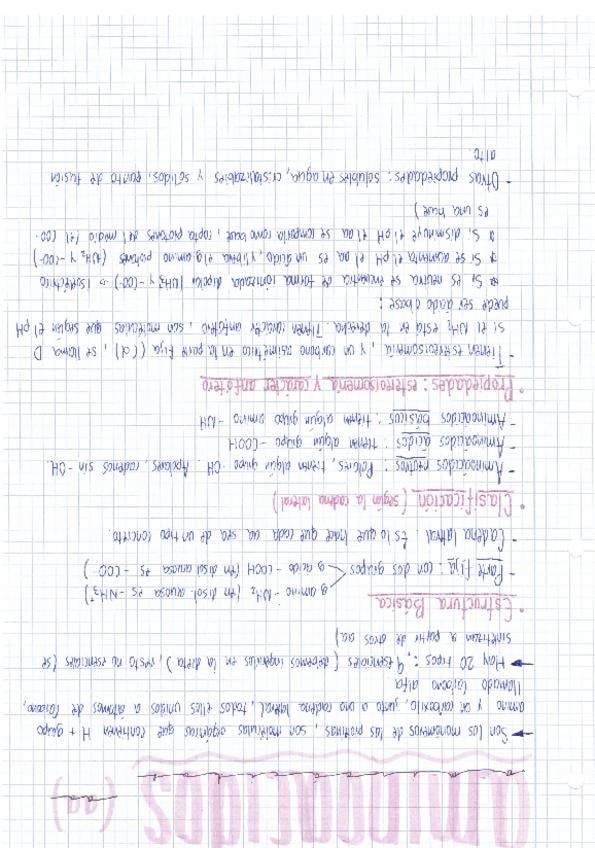 aminoácidos (aa)
Son los monómeros de las proteínas, son moléculas orgánicas que contienen H + grupo
amino y un carboxilo, junto a una cadena lateral, todos ellos unidos a átomos de carbono,
llamado carbono alfa
Hay 20 tipos: 9 esenciales (debemos ingerirlos en la dieta), resto no esenciales (se
sintetizan a partir de otros aa)
• Estructura Básica
- Parte fija: con dos grupos
g amino -NH2 (en disol. acuosa es -NH3+)
g ácido - COOH (en disol acuosa es - COO-)
- Cadena lateral Es lo que hace que cada aa sea de un tipo concreto.
• Clasificación (según la cadena lateral)
- Aminoácidos neutros: Polares, tienen algún grupo -OH. Apolares, cadenas sin -OH.
- Aminoácidos ácidos: tienen algún grupo -COOH
- Aminoácidos básicos: tienen algún grupo amino -NH
• Propiedades: estereoisomería y carácter anfótero
- Tienen estereoisomería, y un carbono asimétrico en la parte fija (Cα), se llama D
si el NH2 está en la derecha. Tienen carácter anfótero, son moléculas que según el pH
puede ser ácido o base:
Si es neutra se encuentra de forma ionizada dipolar (NH3 y -COO-) → Isoeléctrico
Si se aumenta el pH el aa es un ácido, y libera el g. amino protones (NH2 y -COO-)
Si disminuye el pH el aa se comporta como base, capta protones del medio (el COO-
es una base)
- Otras propiedades: solubles en agua, cristalizables y sólidos, punto de fusión
alto.